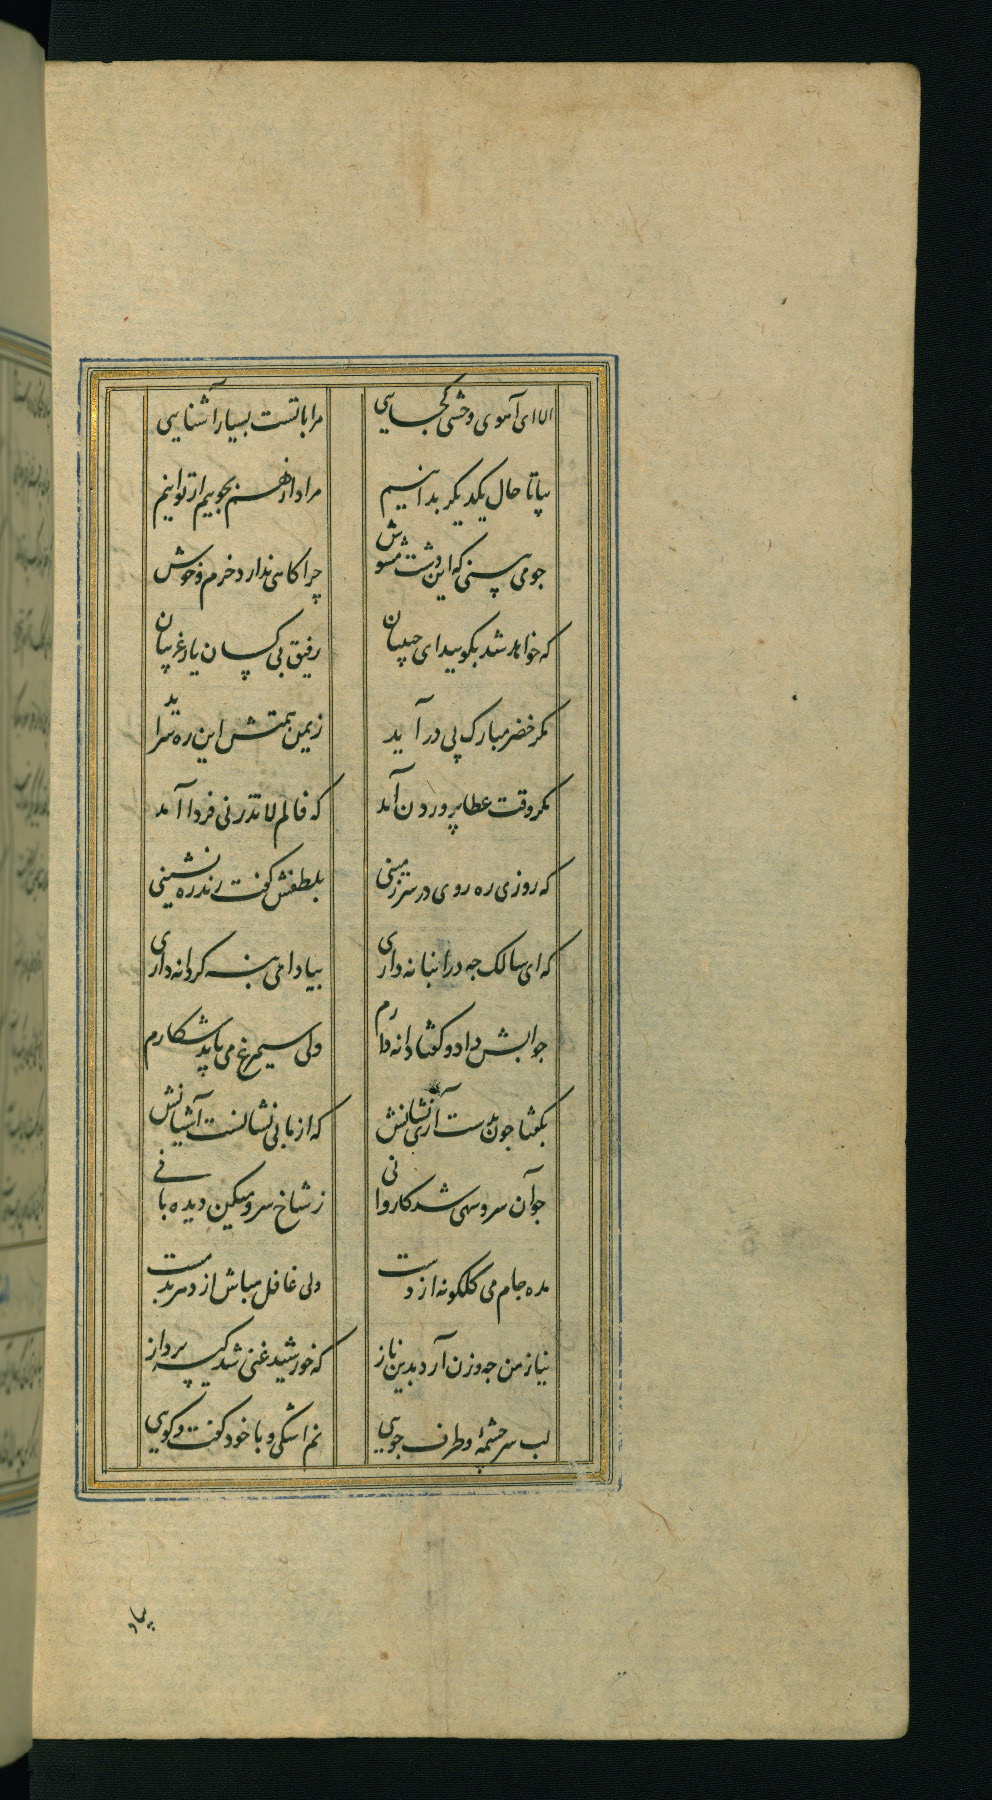 الا ای آهوی وحشی کجایی مرا باتست بسیار آشنایی
بیا تا حال یکدیکر بدانیم مراد از هم بجوییم ار توانیم
جو می بینی که این دشت مشوش چرا کاهی ندارد خرم و خوش
که خواهد شد بکویید ای حبیبان رفیق بی کسان یار غریبان
مکر خضر مبارک پی در آید ز یمن همتش این ره سر آید
مکر وقت عطا پروردن آمد که فالم لا تذرنی فردا آمد
که روزی ره روی در سرزمینی بلطفش کفت رندره نشینی
که ای سالک جه در انبانه داری بیا دامی بنه کر دانه داری
جوابش داد و کفتا دانه دارم ولی سیمرغ می باید شکارم
بکفتا جون بدست آری نشانش که از ما بی نشانست آشیانش
جو آن سرو سهی شد کاروانی ز شاخ سرو میکن دیده بانی
مده جام می کلکونه از دست ولی غافل مباش از دهر بدمست
نیاز من جه وزن آرد بدین ناز که خورشید غنی شد کیسه پرداز
لب سر چشمهٔ و طرف جویی نم اشکی و با خود کفت و کویی
بیاد